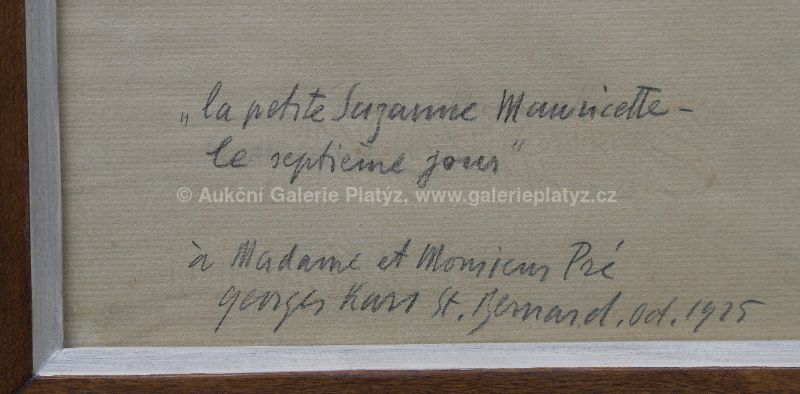 „la petite Suzanne Mauricette –
le septième jour"
© Aukční Galerie Platýz, www.galerieplatyz.cz
à Madame et Monsieur Pré
georges Kars St. Bernard. Oct. 1925